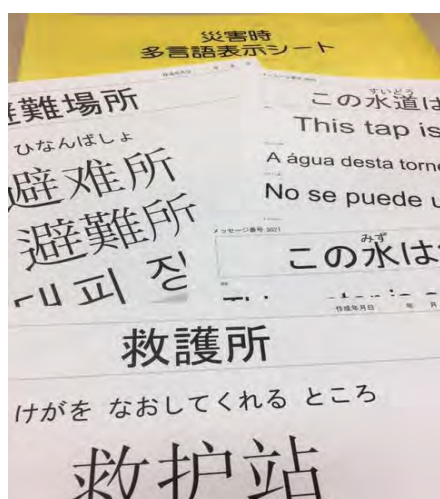 災害時
多言語表示シート
避難場所
ひなんばしょ
避难所
避難所
대피 장
すいどう
この水道は
This tap is
A água desta torne
No se puede u
メッセージ番号 2021
みず
この水は
作成年月日 年 月
救護所
けがを なおしてくれる ところ
救护站